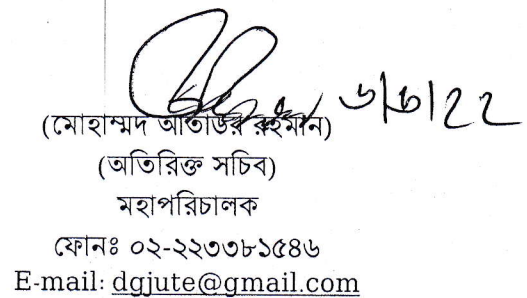 ৬|৬|২২
(মোহাম্মদ আতাউর রহমান)
(অতিরিক্ত সচিব)
মহাপরিচালক
ফোনঃ ০২-২২৩৩৮১৫৪৬
E-mail: dgjute@gmail.com